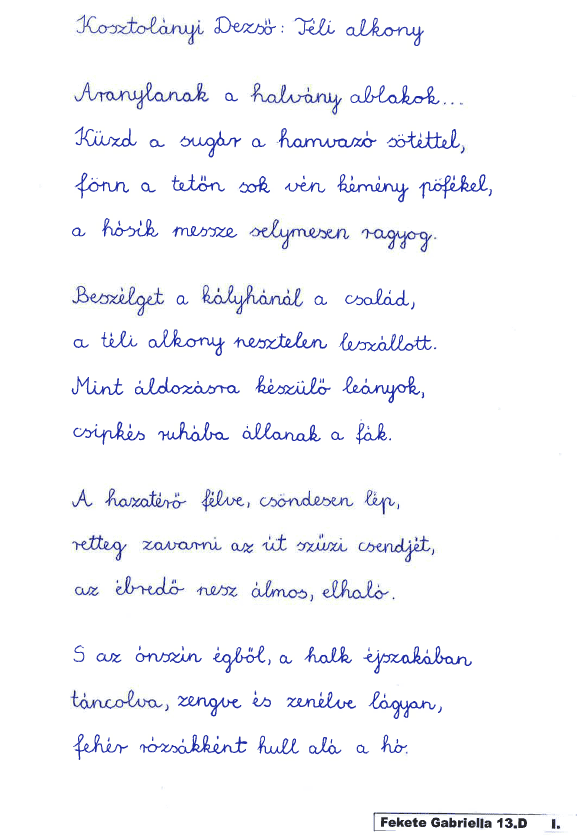 Kosztolányi Dezső: Téli alkony
Aranylanak a halvány ablakok...
Küzd a sugár a hamvazó sötéttel,
fönn a tetőn sok vén kémény pöfékel,
a hósík messze selymesen ragyog.
Beszélget a kályhánál a család,
a téli alkony nesztelen leszállott.
Mint áldozásra készülő leányok,
csipkés ruhába állanak a fák.
A hazatérő félve, csöndesen lép,
retteg zavarni az út szűzi csendjét,
az ébredő nesz álmos, elhaló.
S az ónszín égből, a halk éjszakában
táncolva, zengve és zenélve lágyan,
fehér rózsákként hull alá a hó.
Fekete Gabriella 13.D I.